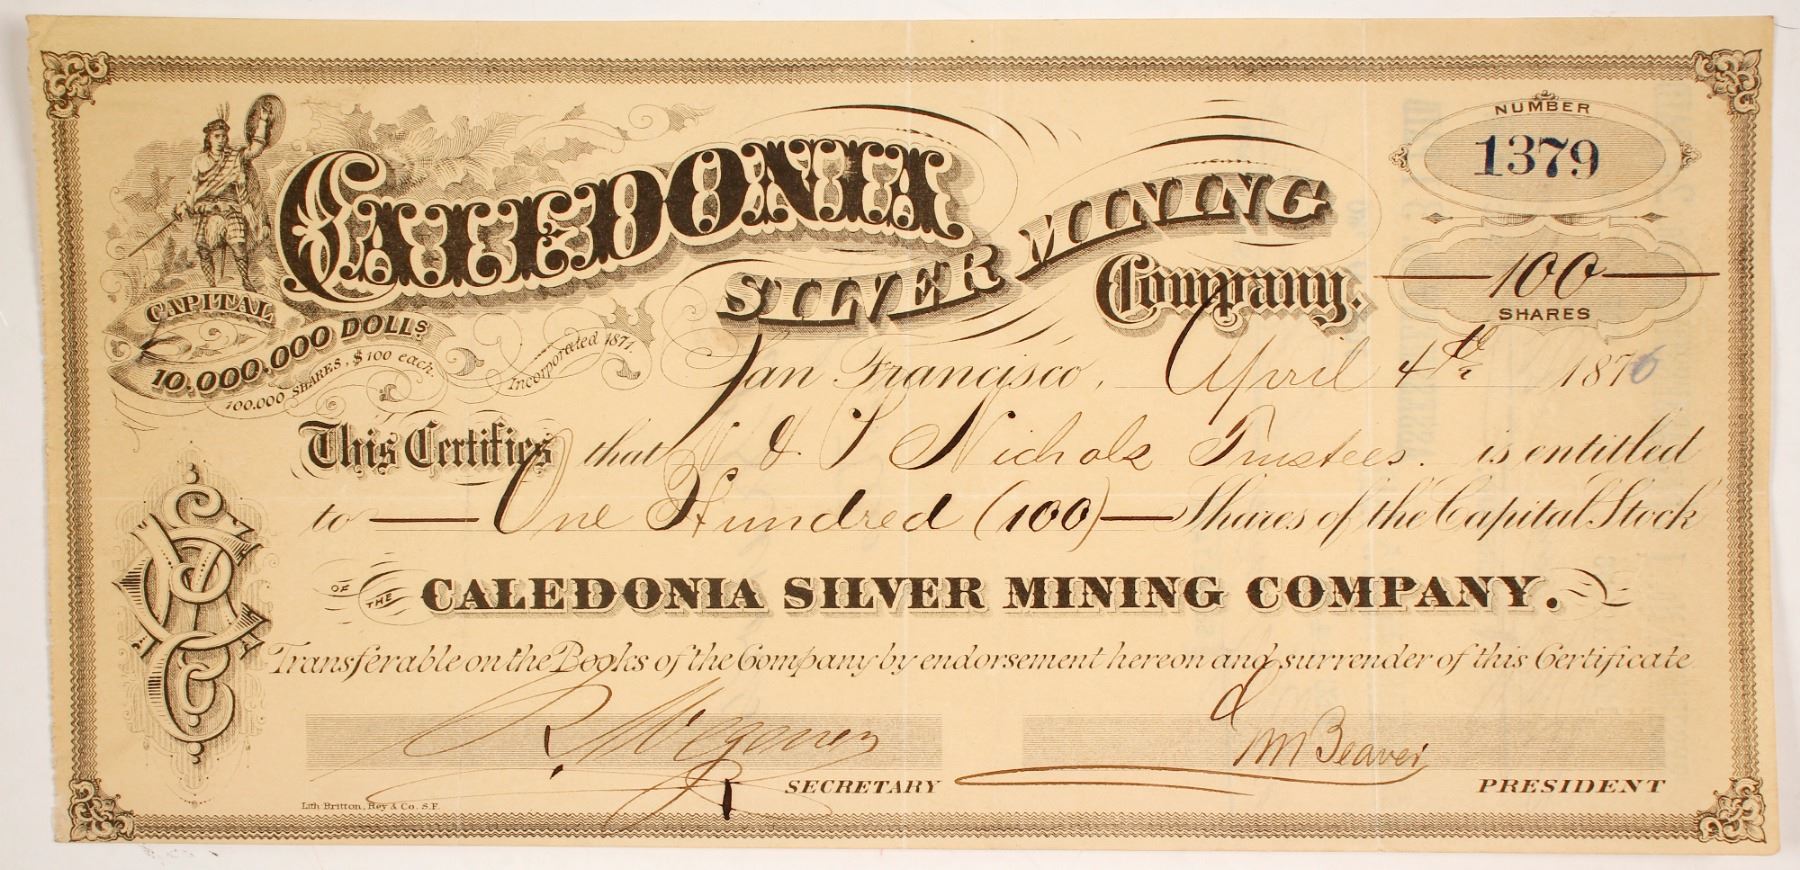 CALEDONIA
SILVER MINING
Company.
NUMBER
1379
100
SHARES
CAPITAL
10.000.000 DOLLS
100.000 SHARES, $100 each.
Incorporated 1871.
San Francisco, April 4th 1876
This Certifies that & Nichols Trustees. is entitled
to One Hundred (100) Shares of the Capital Stock
OF THE CALEDONIA SILVER MINING COMPANY.
Transferable on the Books of the Company by endorsement hereon and surrender of this Certificate
R. Wegener
SECRETARY
Wm Beaver
PRESIDENT
Lith Britton, Rey & Co. S.F.